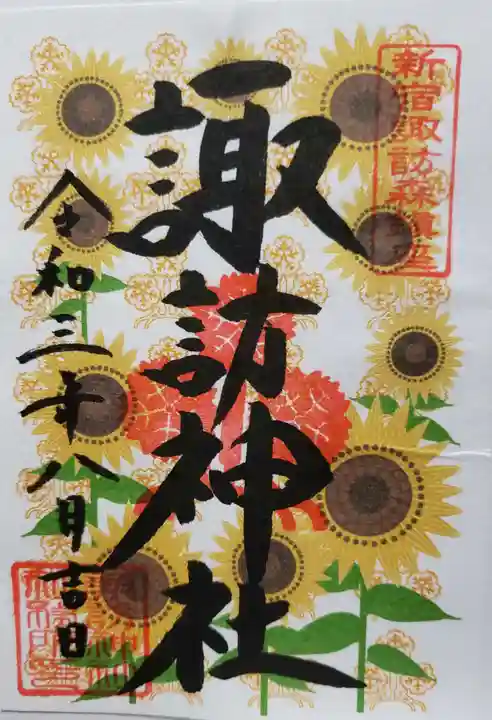 新宿諏訪森鎮座
諏訪神社
令和三年八月吉日